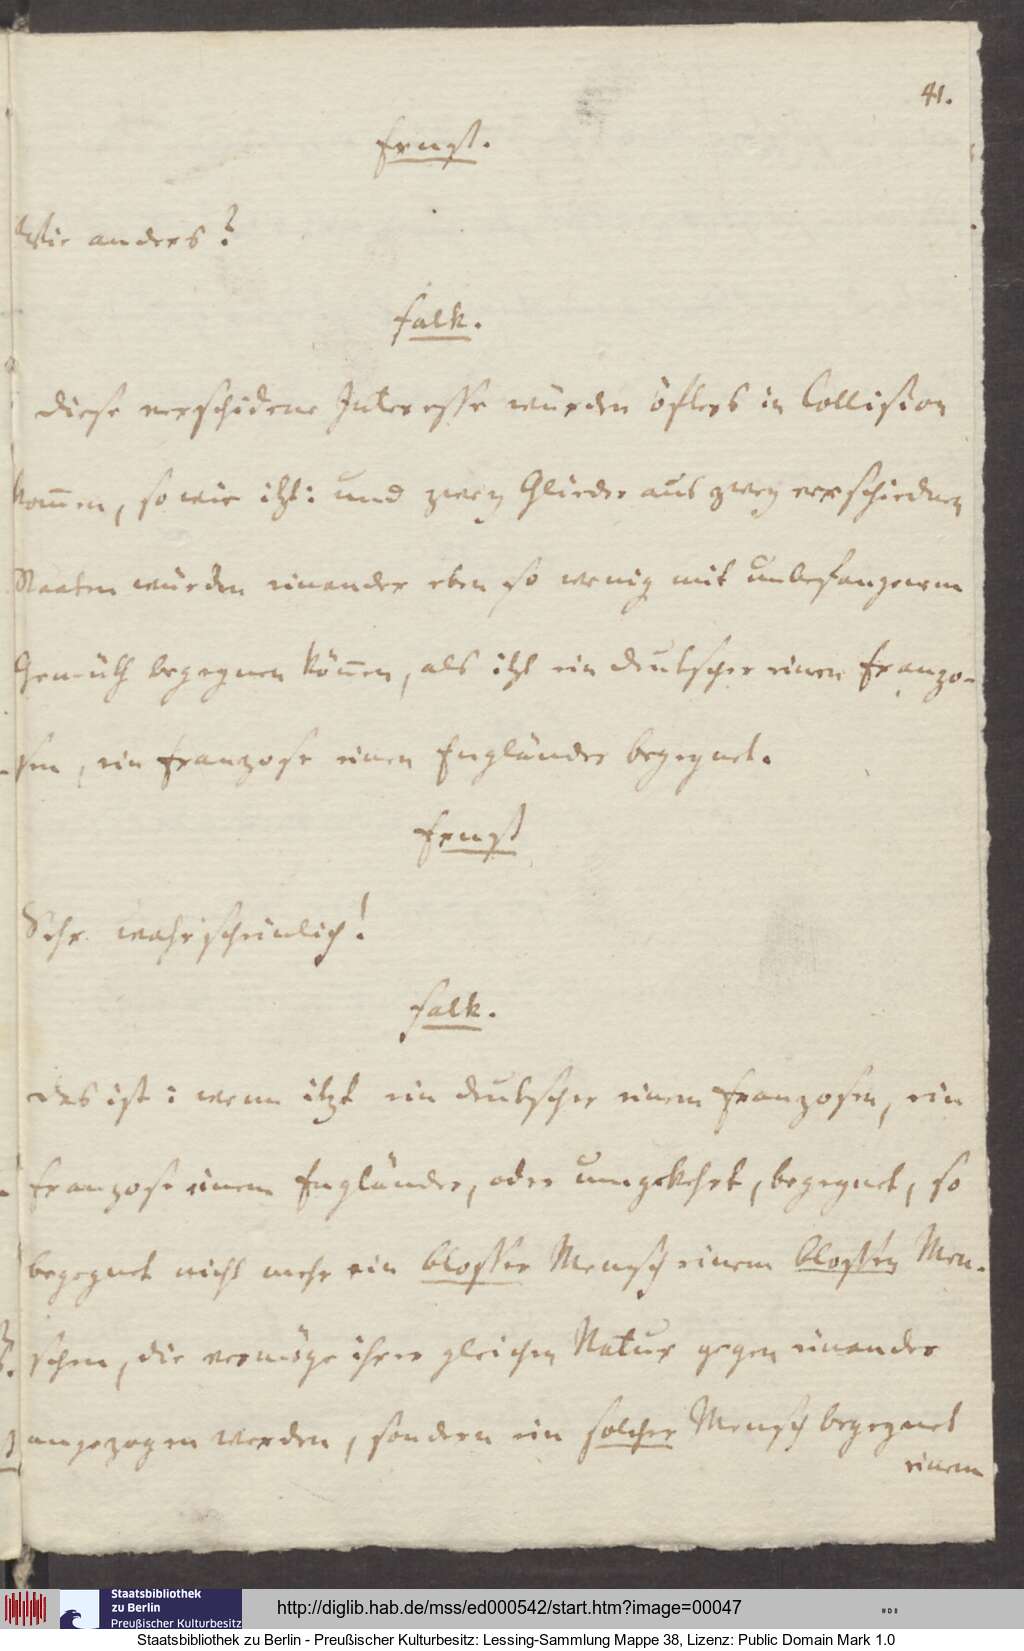 41.
Ernst.
Wie anders?
Falk.
Diese verschidene Interesse würden öfters in Collision
kom̄en, so wie itzt: und zwey Glieder aus zwey verschiednen
Staaten würden einander eben so wenig mit unbefangenem
Gemüth begegnen kön̄en, als itzt ein Deutscher einen Franzo-
sen, ein Franzose einen Engländer begegnet.
Ernst
Sehr wahrscheinlich!
Falk.
Das ist: wenn itzt ein Deutscher einem Franzosen, ein
Franzose einem Engländer, oder umgekehrt, begegnet, so
begegnet nicht mehr ein blosser Mensch einem blossen Men-
schen, die vermöge ihrer gleichen Natur gegen einander
angezogen werden, sondern ein solcher Mensch begegnet
einem
Staatsbibliothek
zu Berlin
Preußischer Kulturbesitz
http://diglib.hab.de/mss/ed000542/start.htm?image=00047
Staatsbibliothek zu Berlin - Preußischer Kulturbesitz: Lessing-Sammlung Mappe 38, Lizenz: Public Domain Mark 1.0